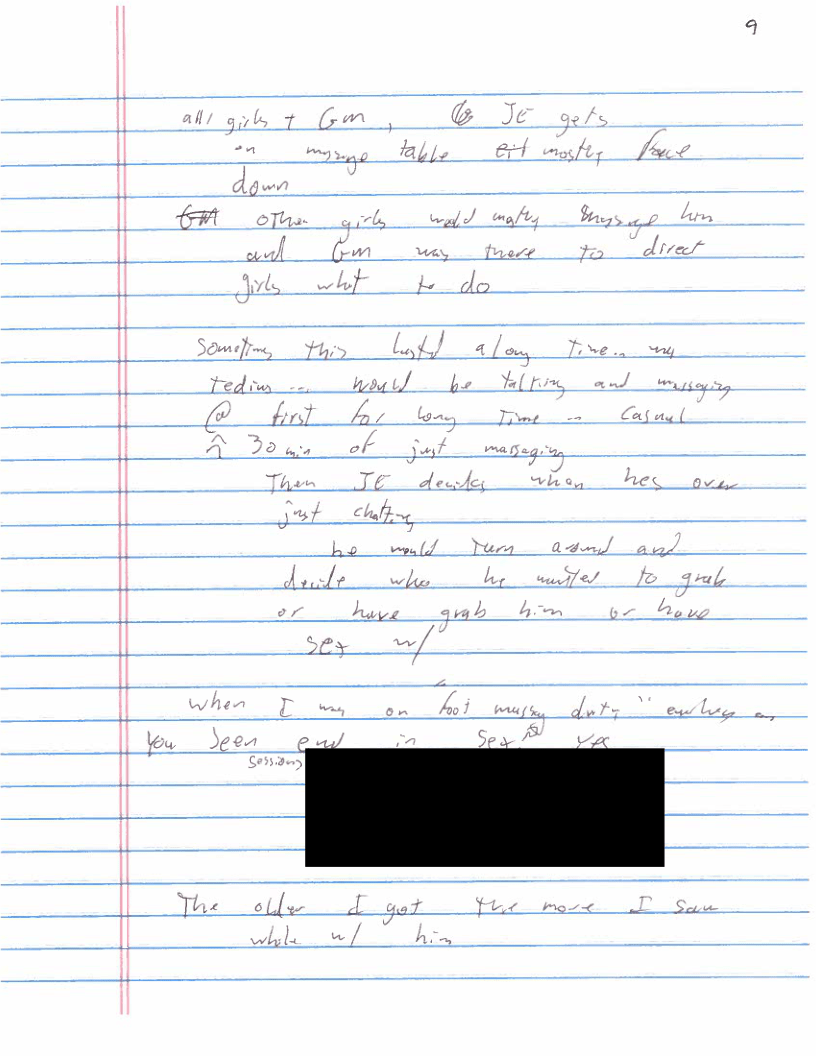 9
all girls + GM, JE gets
on massage table mostly face
down
GM other girls would mostly massage him
and GM was there to direct
girls what to do
Sometimes this lasted a long time..
tedius --- would be talking and massaging
@ first for long time -- casual
30 min of just massaging
Then JE decides when hes over
just chatting
he would turn around and
decide who he wanted to grab
or have grab him or have
sex w/
when I was on "foot massag duty"
you seen end in sex yes
sessions
The older I got the more I saw
while w/ him